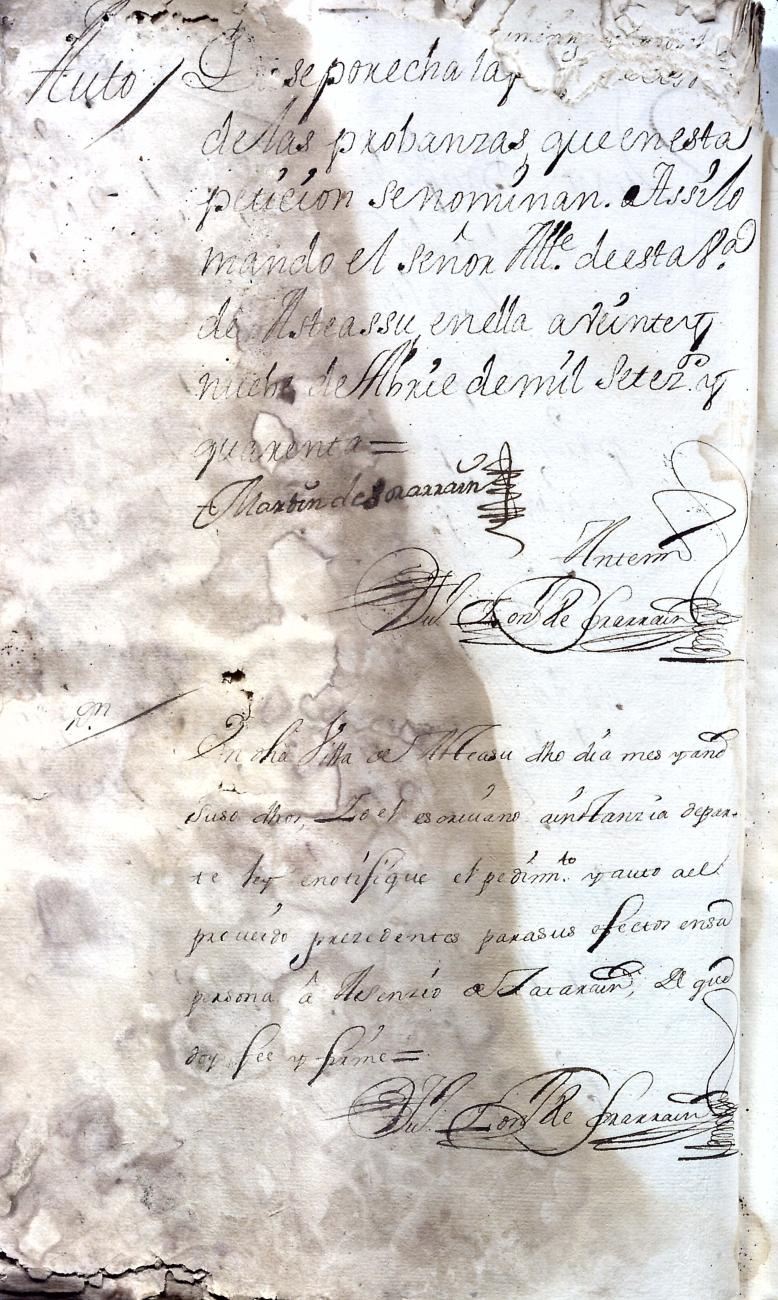 Auto / De se por echa la
de las probanzas, que en esta
peticion se nominan. Assi lo
mando el señor Alle. de esta Va.
de Asteassu, en ella a veinte y
nuebe de Abril de mil Setezos. y
quarenta =
Martin de Sorarrain
Antemi
de Sorarrain
Rn.
En dha Villa de Asteasu dho dia mes y año
suso dhos, Yo el escrivano a instanzia de par-
te ley e notifique el pedimto. y auto a el
proveido prezedentes para sus efectos en su
persona â Asenzio de, De que
doy fee y firme =
de Sorarrain